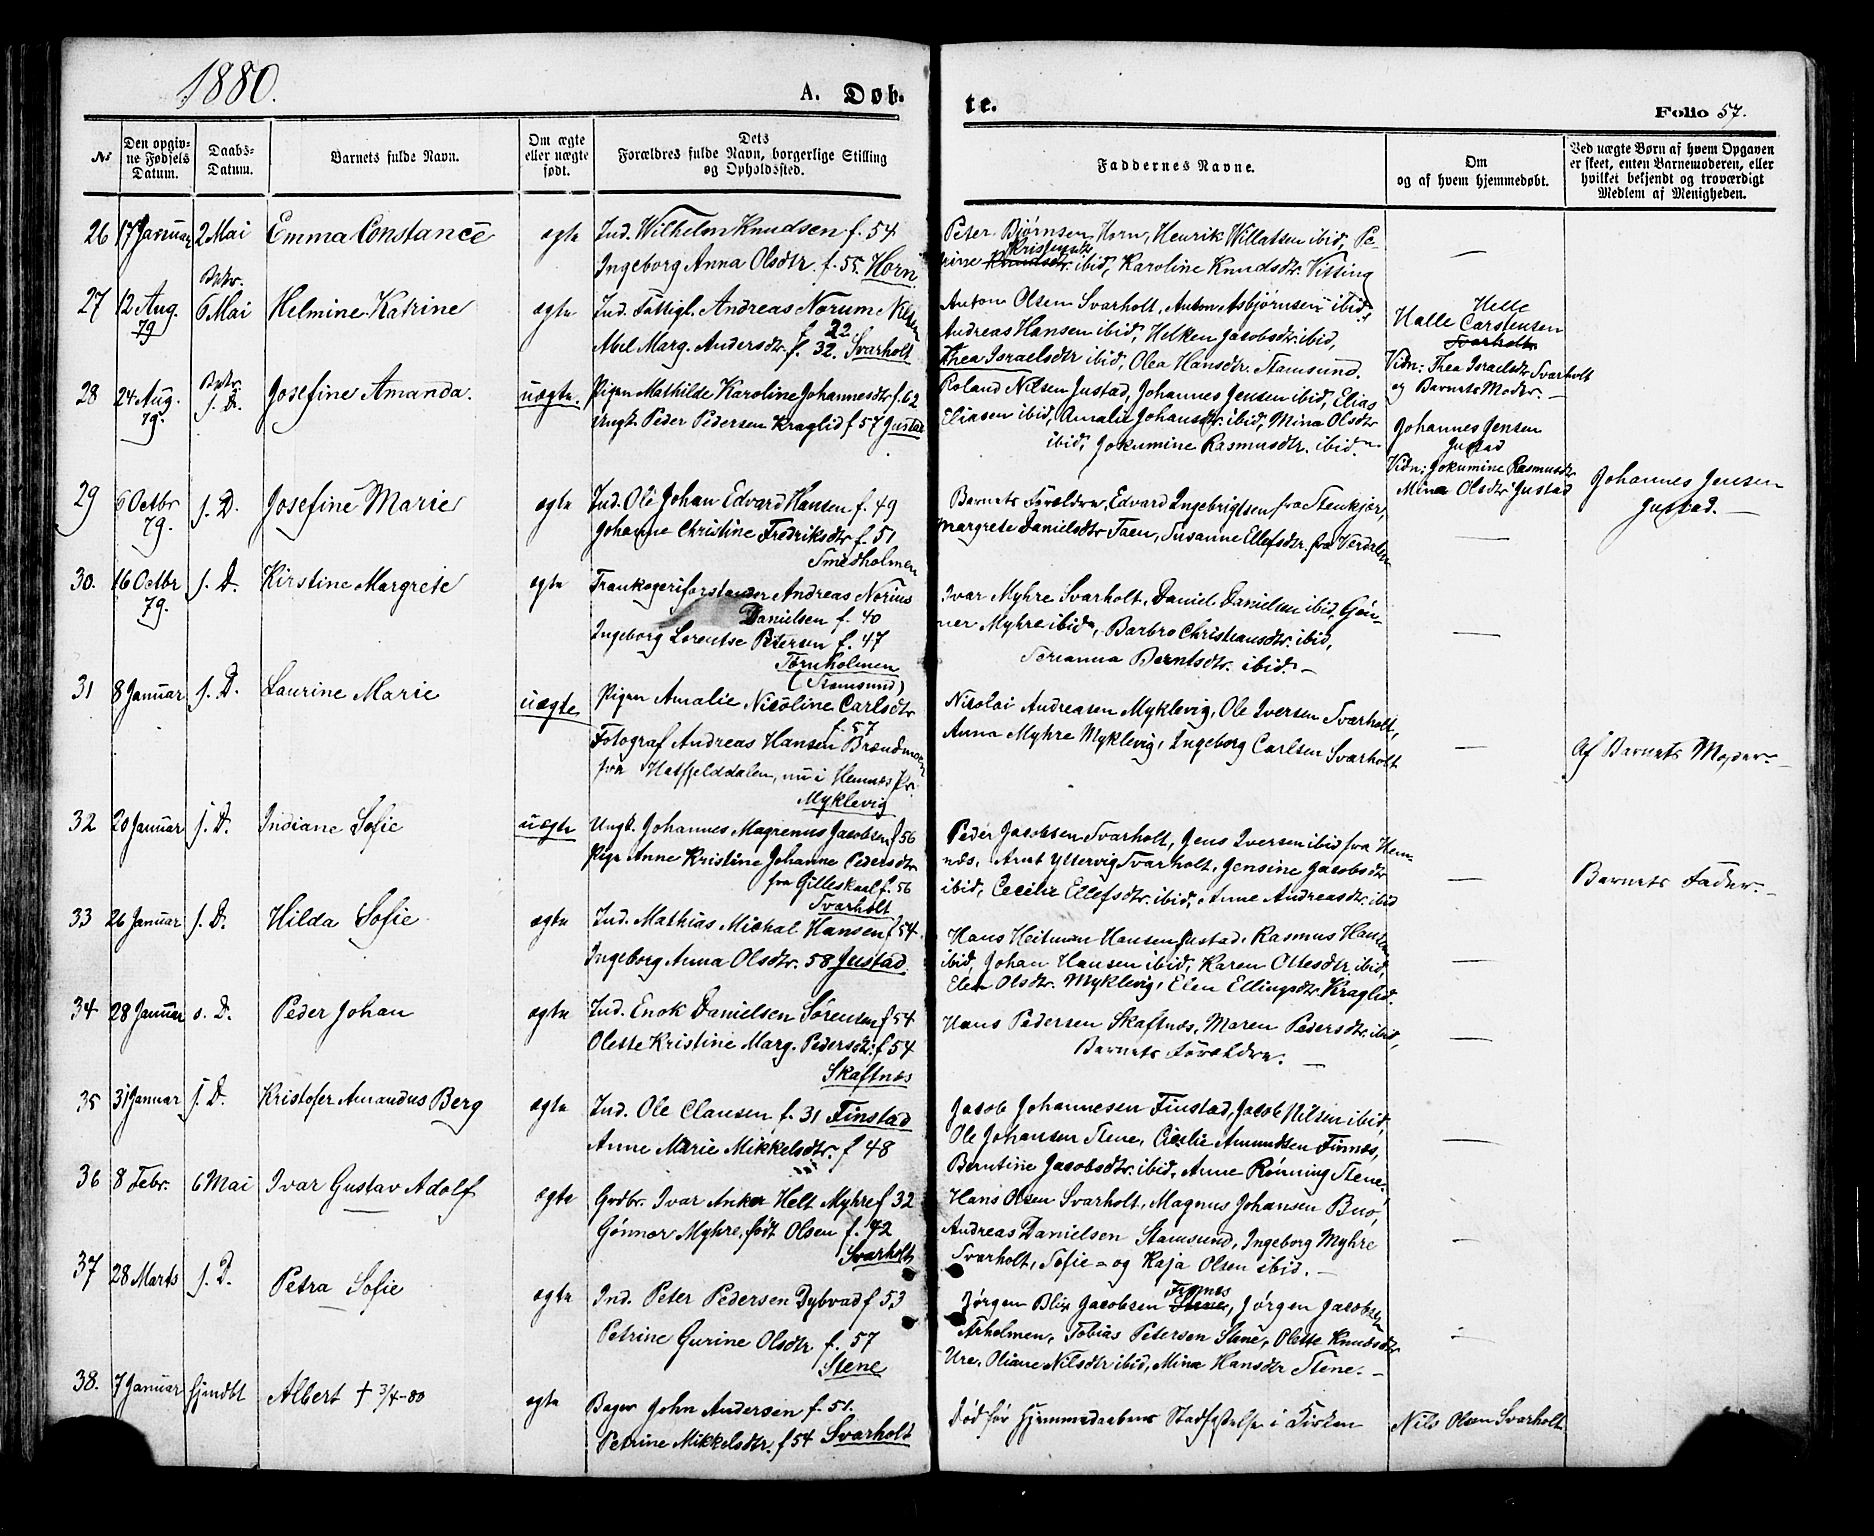 1880.
A. Døb-
te.
Folio 57.
№
Den opgiv-
ne Fødsels
Datum.
Daabs-
Datum.
Barnets fulde Navn.
Om ægte
eller uægte
født.
Dets
Forældres fulde Navn, borgerlige Stilling
og Opholdssted.
Faddernes Navne.
Om
og af hvem hjemmedøbt.
Ved uægte Børn af hvem Opgaven
er skeet, enten Barnemoderen, eller
hvilket bekjendt og troværdigt
Medlem af Menigheden.
26 17 Januar 2 Mai Emma Constance ægte Ind. Wilhelm Knudsen f. 54
Ingeborg Anna Olsdtr. f. 55. Horn
Peter Bjørnsen Horn, Henrik Willatsen ibid, Pe-
Kristensdtr
trine Knudsdtr. ibid, Karoline Knudsdtr. Vitting
—
27 12 Aug. 79 Bekr. 6 Mai Helmine Katrine ægte Ind. Fattigl. Andreas Norum Nilsen
f. 22.
Abel Marg. Andersdtr. f. 32. Svarholt
Anton Olsen Svarholt, Anton Asbjørnsen ibid,
Andreas Hansen ibid, Helken Jacobsdtr. ibid,
Thea Israelsdtr ibid, Olea Hansdtr. Stamsund.
Helle
Halle Carstensen
Svarholt
Vidn: Thea Israelsdtr Svarholt
og Barnets Moder. —
28 24 Aug. 79. Bekr. s. D. Josefine Amanda. uægte. Pigen Mathilde Karoline Johannesdtr f. 62
Ungk. Peder Pedersen Kraglid f 57 Justad
Roland Nilsen Justad, Johannes Jensen ibid, Elias
Eliasen ibid, Amalie Johansdtr. ibid, Mina Olsdtr
ibid, Jokumine Rasmusdtr. ibid. —
Johannes Jensen
Justad
Vidn: Jokumine Rasmusdtr.
Mina Olsdtr Justad
Johannes Jensen
Justad. —
29 6 Octbr 79. s. D. Josefine Marie ægte Ind. Ole Johan Edvard Hansen f. 49
Johanne Christine Fredriksdtr f. 51
Smedholmen
Barnets Forældre, Edvard Ingebrigtsen fra Stenkjær,
Margrete Danielsdtr Taen, Susanne Ellefsdtr. fra Verdalen
—
30. 16 Octbr 79. s. D. Kirstine Margrete ægte Trankogeriforstander Andreas Norius
Danielsen f. 40
Ingeborg Lorentse Petersen f. 47
Tørnholmen
(Stamsund)
Ivar Myhre Svarholt, Daniel Danielsen ibid, Gøn-
ner Myhre ibid, Barbro Christiansdtr. ibid,
Serianna Berntsdtr. ibid. —
—
31 8 Januar s. D. Laurine Marie uægte Pigen Amalie Nicoline Carlsdtr
f. 57
Fotograf Andreas Hansen Brændmoen
fra Hatfjelddalen, nu i Hemnæs Pr.
Myklevig
Nicolai Andreasen Myklevig, Ole Iversen Svarholt,
Anna Myhre Myklevig, Ingeborg Carlsen Svarholt
—
Af Barnets Moder. —
32 20 Januar s. D. Indiane Sofie uægte Ungk. Johannes Magnus Jacobsen f 56
Pige Anne Kristine Johanne Pedersdtr
fra Gilleskaal f. 56
Svarholt
Peder Jacobsen Svarholt, Jens Iversen ibid fra Hem-
næs, Arnt Yttervig Svarholt, Jensine Jacobsdtr
ibid, Cecilie Ellefsdtr. ibid, Anne Andreasdtr. ibid
—
Barnets Fader. —
33 26 Januar s. D. Hilda Sofie ægte Ind. Mathias Michal Hansen f 54.
Ingeborg Anna Olsdtr. 58 Justad.
Hans Heitman Hansen Justad, Rasmus Hansen
ibid, Johan Hansen ibid, Karen Ottesdtr. ibid,
Elen Olsdtr. Myklevig, Elen Ellingsdtr. Kraglid.
—
34 28 Januar s. D. Peder Johan ægte Ind. Enok Danielsen Sørensen f 54
Olette Kristine Marg. Pedersdt: f 54
Skaftnæs
Hans Pedersen Skaftnæs, Maren Pedersdtr. ibid,
Barnets Forældre. —
—
35 31 Januar s. D. Kristofer Amandus Berg ægte Ind. Ole Clausen f. 31 Finstad
Anne Marie Mikkelsdtr. f 48
Jacob Johannesen Finstad, Jacob Nilsen ibid,
Ole Johansen Stene, Cecilie Amundsen Finnæs,
Berntine Jacobsdtr. ibid, Anne Rønning Stene.
—
36 8 Febr. 6 Mai Ivar Gustav Adolf ægte Grdbr. Ivar Anker Helt Myhre f 32
Gønner Myhre, født Olsen f. 42
Svarholt
Hans Olsen Svarholt, Magnus Johansen Buø,
Andreas Danielsen Stamsund, Ingeborg Myhre
Svarholt, Sofie - og Kaja Olsen ibid. —
—
37 28 Marts s. D. Petra Sofie ægte Ind. Peter Pedersen Dybvad f 53
Petrine Gurine Olsdtr. f. 57
Stene
Finnes
Jørgen Blix Jacobsen Stene, Jørgen Jacobsen
Arholmen, Tobias Petersen Stene, Olette Knudsdtr.
Ure, Oliane Nilsdtr ibid, Mina Hansdtr Stene. —
—
38. 7 Januar hjmdbt Albert † 3/4-80 ægte Bager John Andersen f. 51.
Petrine Mikkelsdtr. f 54 Svarholt
Død før Hjemmedaabens Stadfæstelse i Kirken
Nils Olsen Svarholt